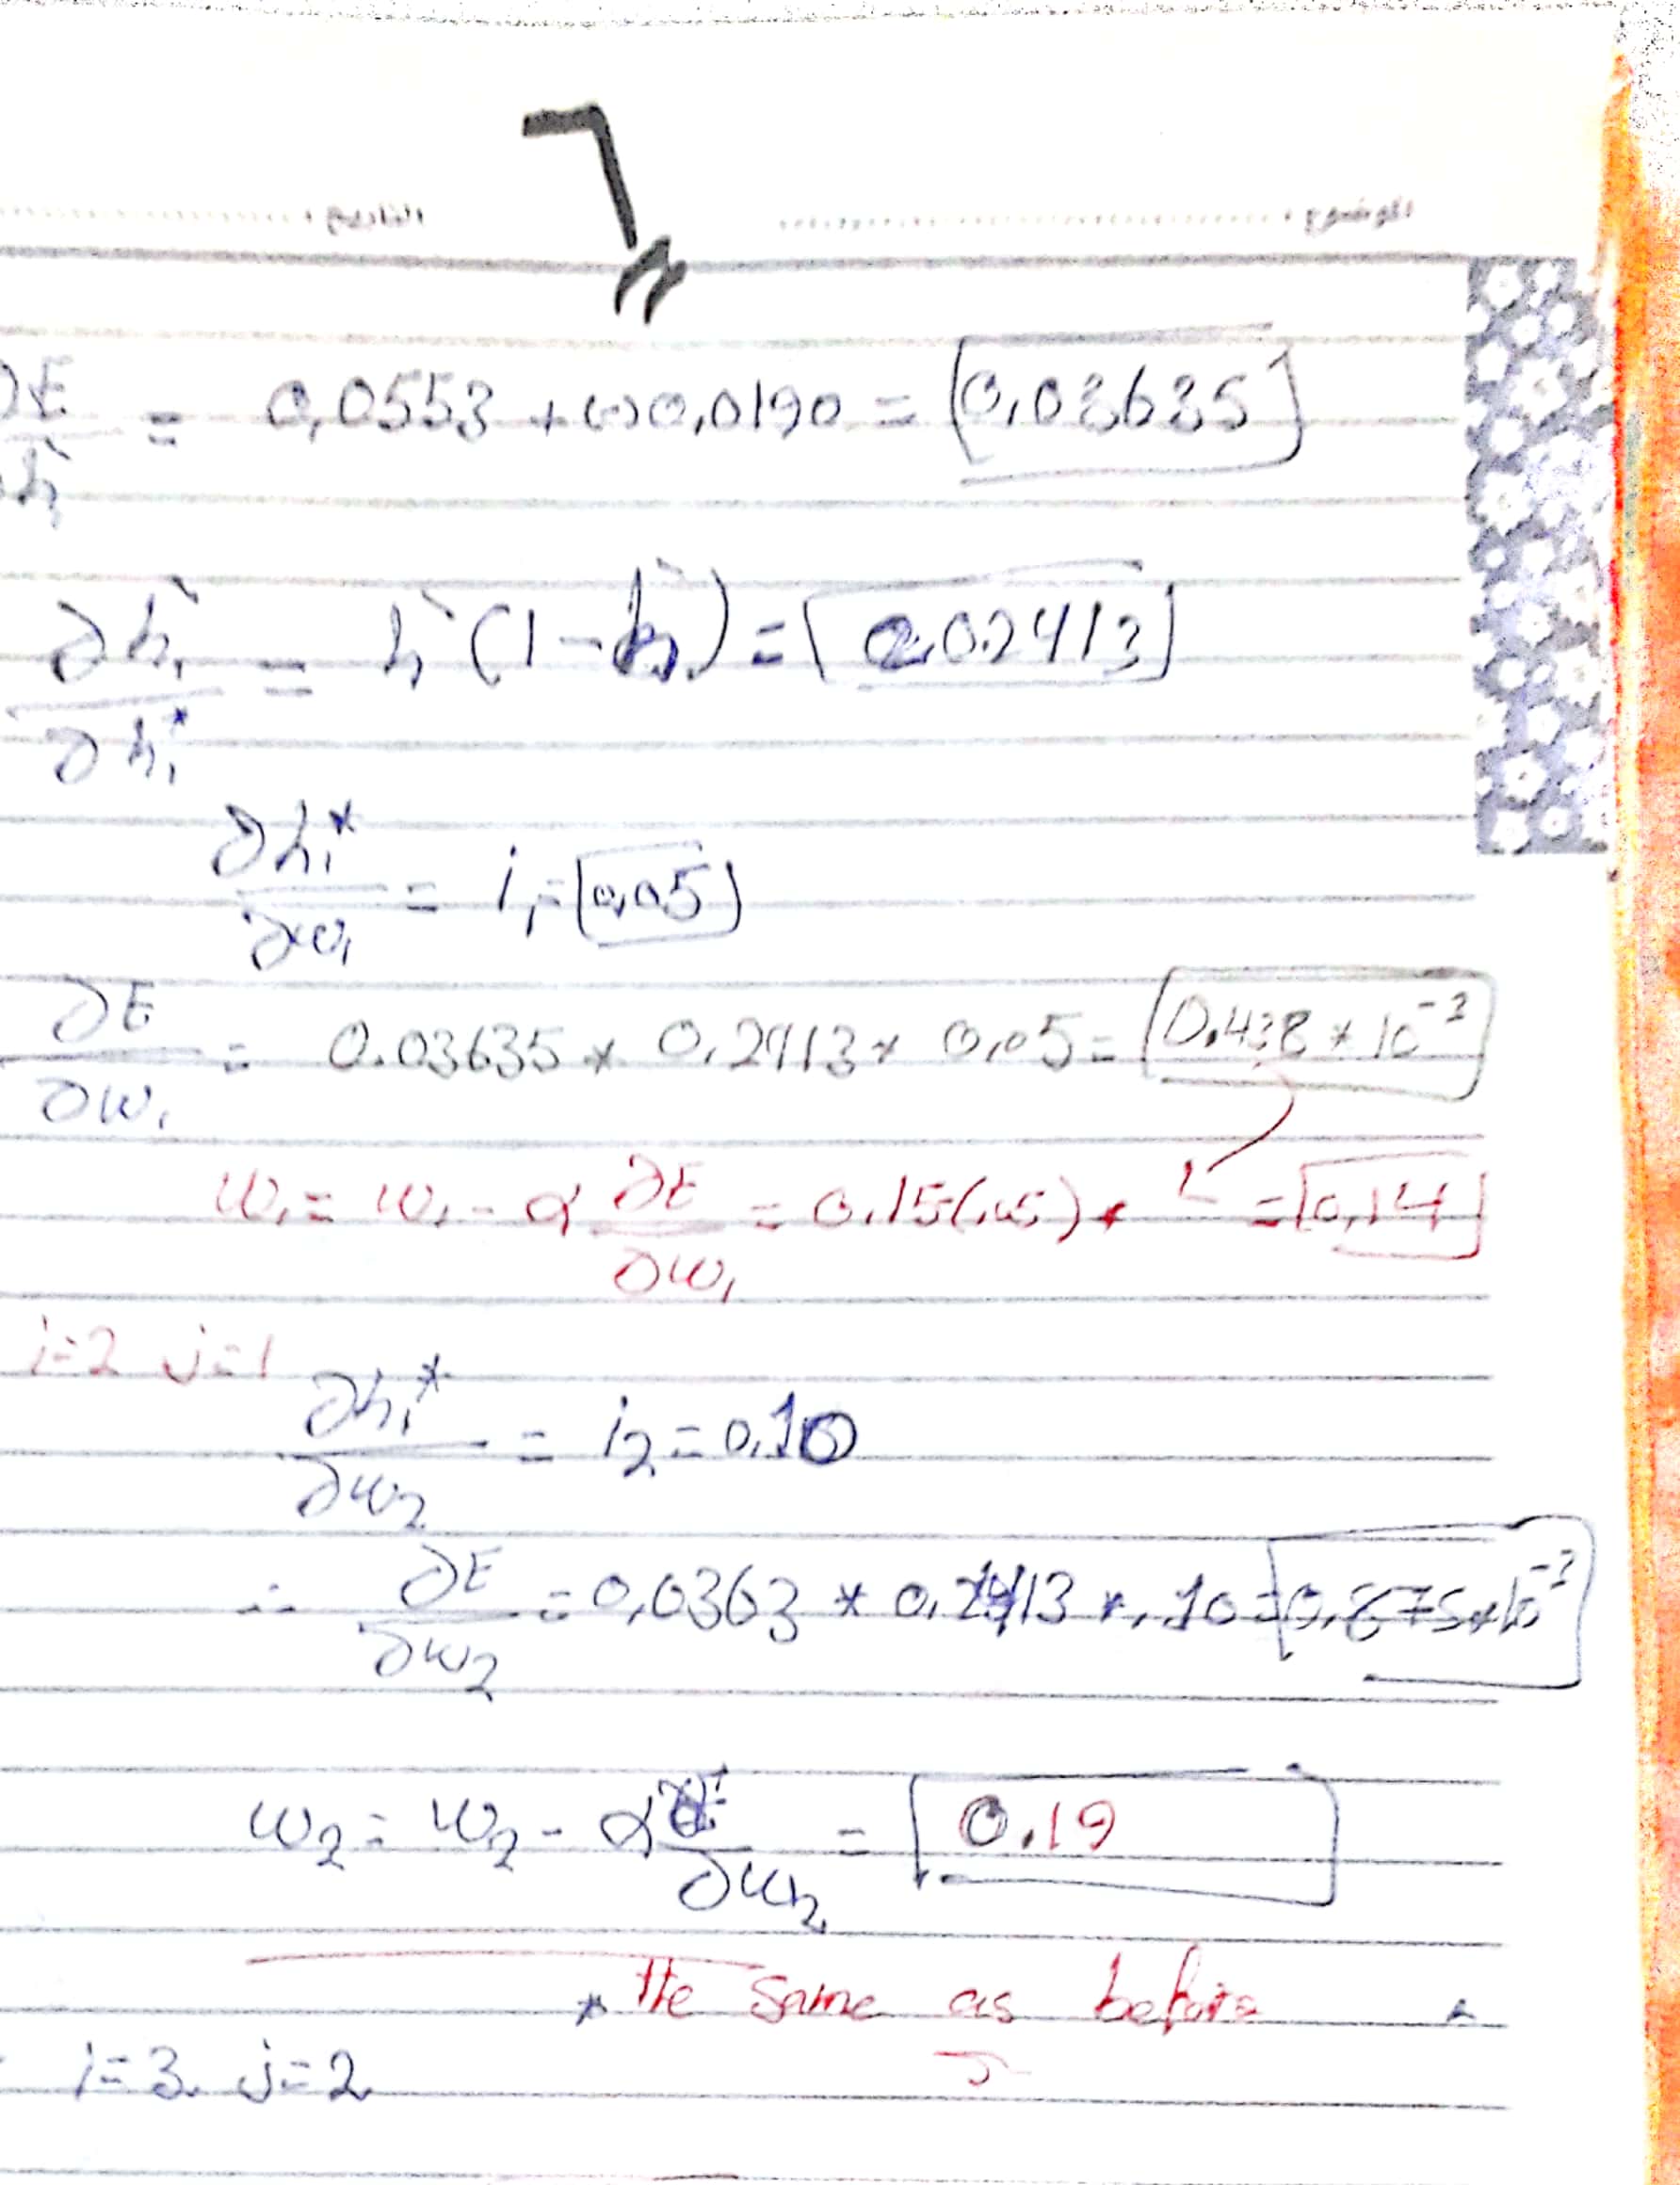 7
الموضوع : التاريخ :
∂E/∂h₁ = 0,0553 + (-)0,0190 = 0,03635
∂h₁/∂h₁* = h₁(1-h₁) = 0.2413
∂h₁*/∂w₁ = i₁ = 0,05
∂E/∂w₁ = 0.03635 * 0,2413 * 0,05 = 0.438 * 10⁻³
w₁ = w₁ - α ∂E/∂w₁ = 0.15(.05) * = 0,14
i=2 j=1
∂h₁*/∂w₂ = i₂ = 0.10
∴ ∂E/∂w₂ = 0,0363 * 0,2413 * .10 = 0.875*10⁻³
w₂ = w₂ - α ∂E/∂w₂ = 0.19
* the same as before *
i=3 j=2